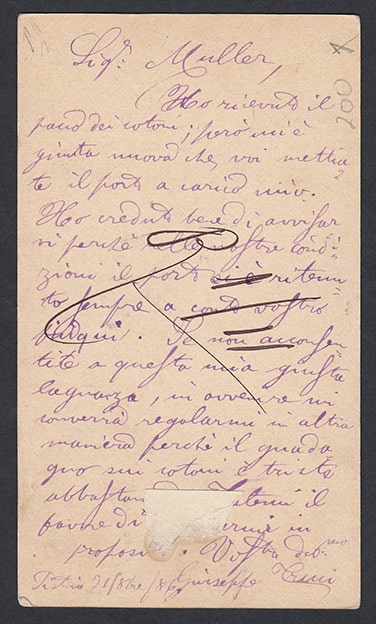 Sigr. Muller,
Ho ricevuto il
pacco dei cotoni; però mi è
giunta nuova che voi mettia-
te il porto a carico mio.
Ho creduto bene di avvisar
vi perchè alle nostre condi-
zioni il porto si è ritenu
to sempre a conto vostro
fin qui. Se non acconsen-
tite a questa mia giusta
lagnanza, in avvenire mi
converrà regolarmi in altra
maniera perchè il guada
gno sui cotoni è triste
abbastan il
favore di in
proposi Vostro dev.mo
21/8bre/86 Giuseppe
200